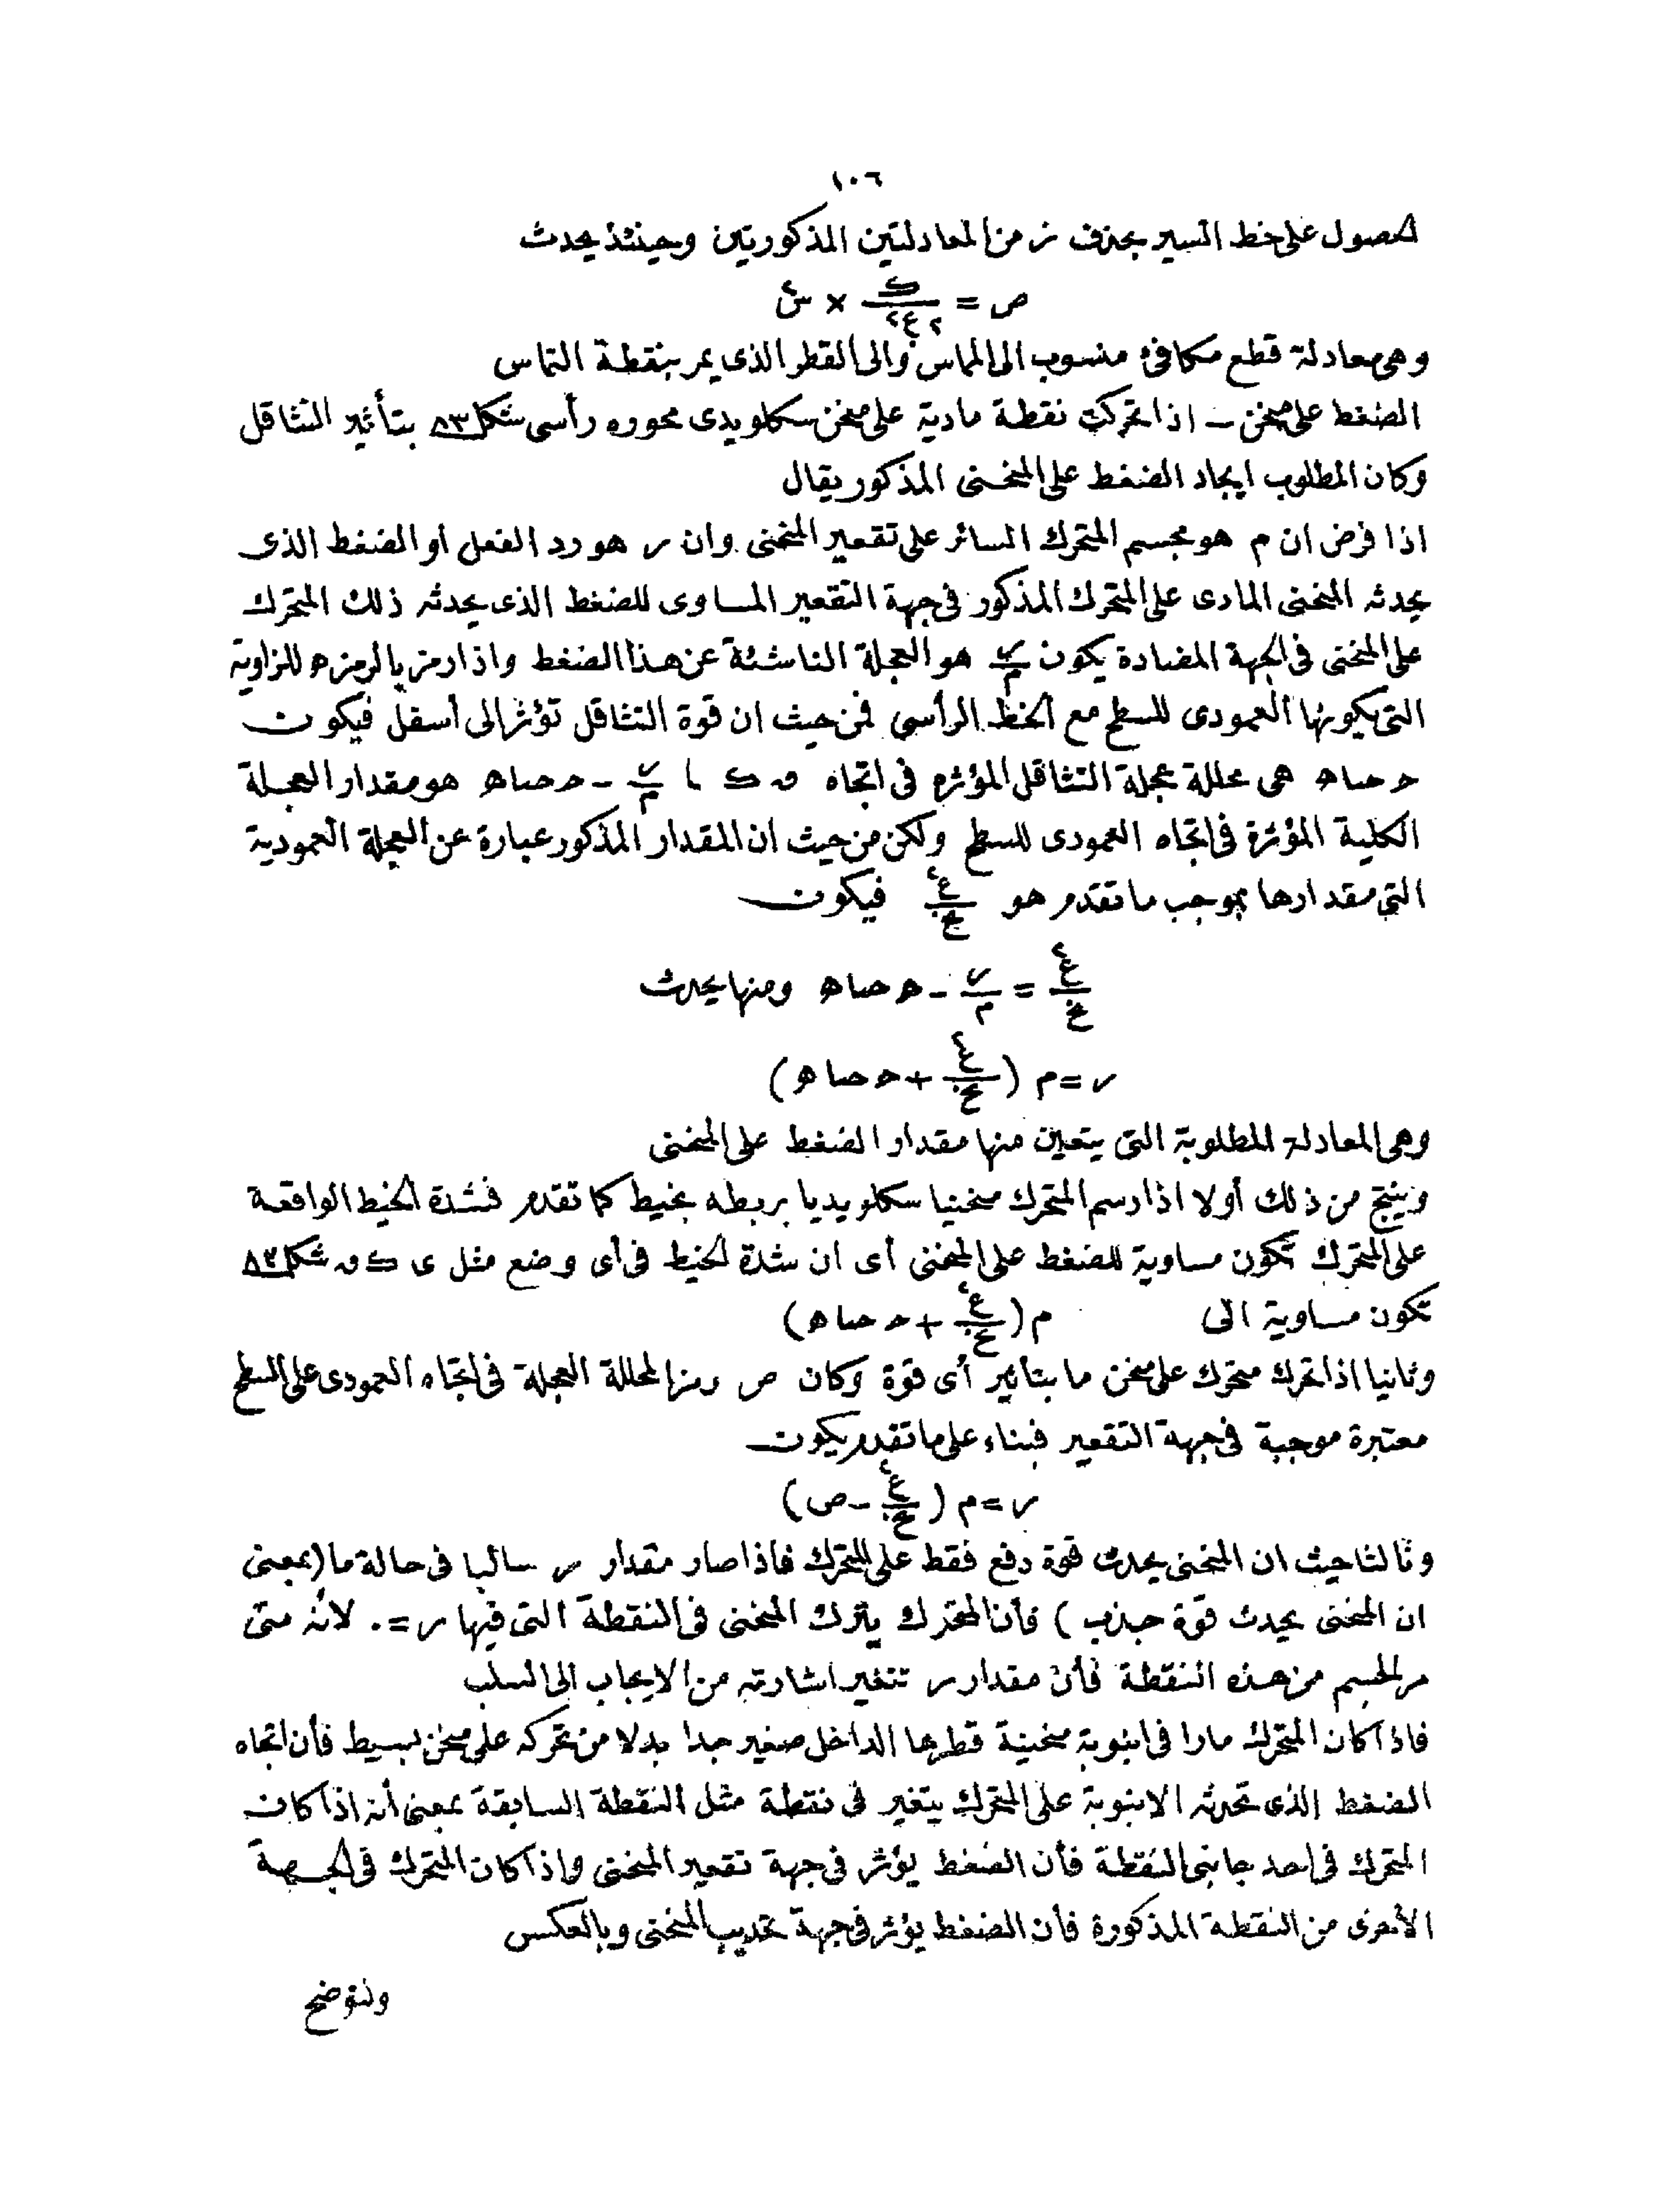 ١٠٦
الحصول على خط السير بحذف ز من المعادلتين المذكورتين وحينئذ يحدث
ص = ك/٢ع٢ × س٢
وهى معادلة قطع مكافئ منسوب الى المماس والى القطر الذى يمر بنقطة التماس
الضغط على منحن ــ اذا تحركت نقطة مادية على منحن سكلويدى محوره رأسى شكل ٨٣ بتأثير التثاقل
وكان المطلوب ايجاد الضغط على المنحنى المذكور يقال
اذا فرض ان م هو مجسم المتحرك السائر على تقعير المنحنى وان ر هو رد الفعل أو الضغط الذى
يحدثه المنحنى المادى على المتحرك المذكور فى جهة التقعير المساوى للضغط الذى يحدثه ذلك المتحرك
على المنحنى فى الجهة المضادة يكون ر/م هو العجلة الناشئة عن هذا الضغط واذا رمز بالرمز ه للزاوية
التى يكونها العمودى للسطح مع الخط الرأسى فمن حيث ان قوة التثاقل تؤثر الى أسفل فيكون
ح حتا ه هى محللة عجلة التثاقل المؤثره فى اتجاه ں ك ا ر/م - ح حتا ه هو مقدار العجلة
الكلية المؤثرة فى اتجاه العمودى للسطح ولكن من حيث ان المقدار المذكور عبارة عن العجلة العمودية
التى مقدارها بموجب ما تقدم هو ع٢/نح فيكون
ع٢/نح = ر/م - ح حتا ه ومنها يحدث
ر = م (ع٢/نح + ح حتا ه)
وهى المعادلة المطلوبة التى يتعين منها مقدار الضغط على المنحنى
وينتج من ذلك أولا اذا رسم المتحرك منحنيا سكلويديا بربطه بخيط كما تقدم فشدة الخيط الواقعة
على المتحرك تكون مساوية للضغط على المنحنى أى ان شدة الخيط فى أى وضع مثل ى ك ں شكل ٨٣
تكون مساوية الى م(ع٢/نح + ح حتا ه)
وثانيا اذا تحرك متحرك على منحن ما بتأثير أى قوة وكان ص رمزا لمحللة العجلة فى اتجاه العمودى على السطح
معتبرة موجبة فى جهة التقعير فبناء على ما تقدم يكون
ر = م (ع٢/نح - ص)
وثالثا حيث ان المنحنى يحدث قوة دفع فقط على المتحرك فاذا صار مقدار ر سالبا فى حالة ما (بمعنى
ان المنحنى يحدث قوة جذب) فأن المتحرك يترك المنحنى فى النقطة التى فيها ر = ٠ لانه متى
مر الجسم من هذه النقطة فأن مقدار ر تتغير اشارته من الايجاب الى السلب
فاذا كان المتحرك مارا فى انبوبة منحنية قطرها الداخل صغير جدا بدلا من تحركه على منحن بسيط فأن اتجاه
الضغط الذى تحدثه الانبوبة على المتحرك يتغير فى نقطة مثل النقطة السابقة بمعنى أنه اذا كان
المتحرك فى احد جانبى النقطة فأن الضغط يؤثر فى جهة تقعير المنحنى واذا كان المتحرك فى الجهة
الأخرى من النقطة المذكورة فأن الضغط يؤثر فى جهة تحديب المنحنى وبالعكس
ولنوضح